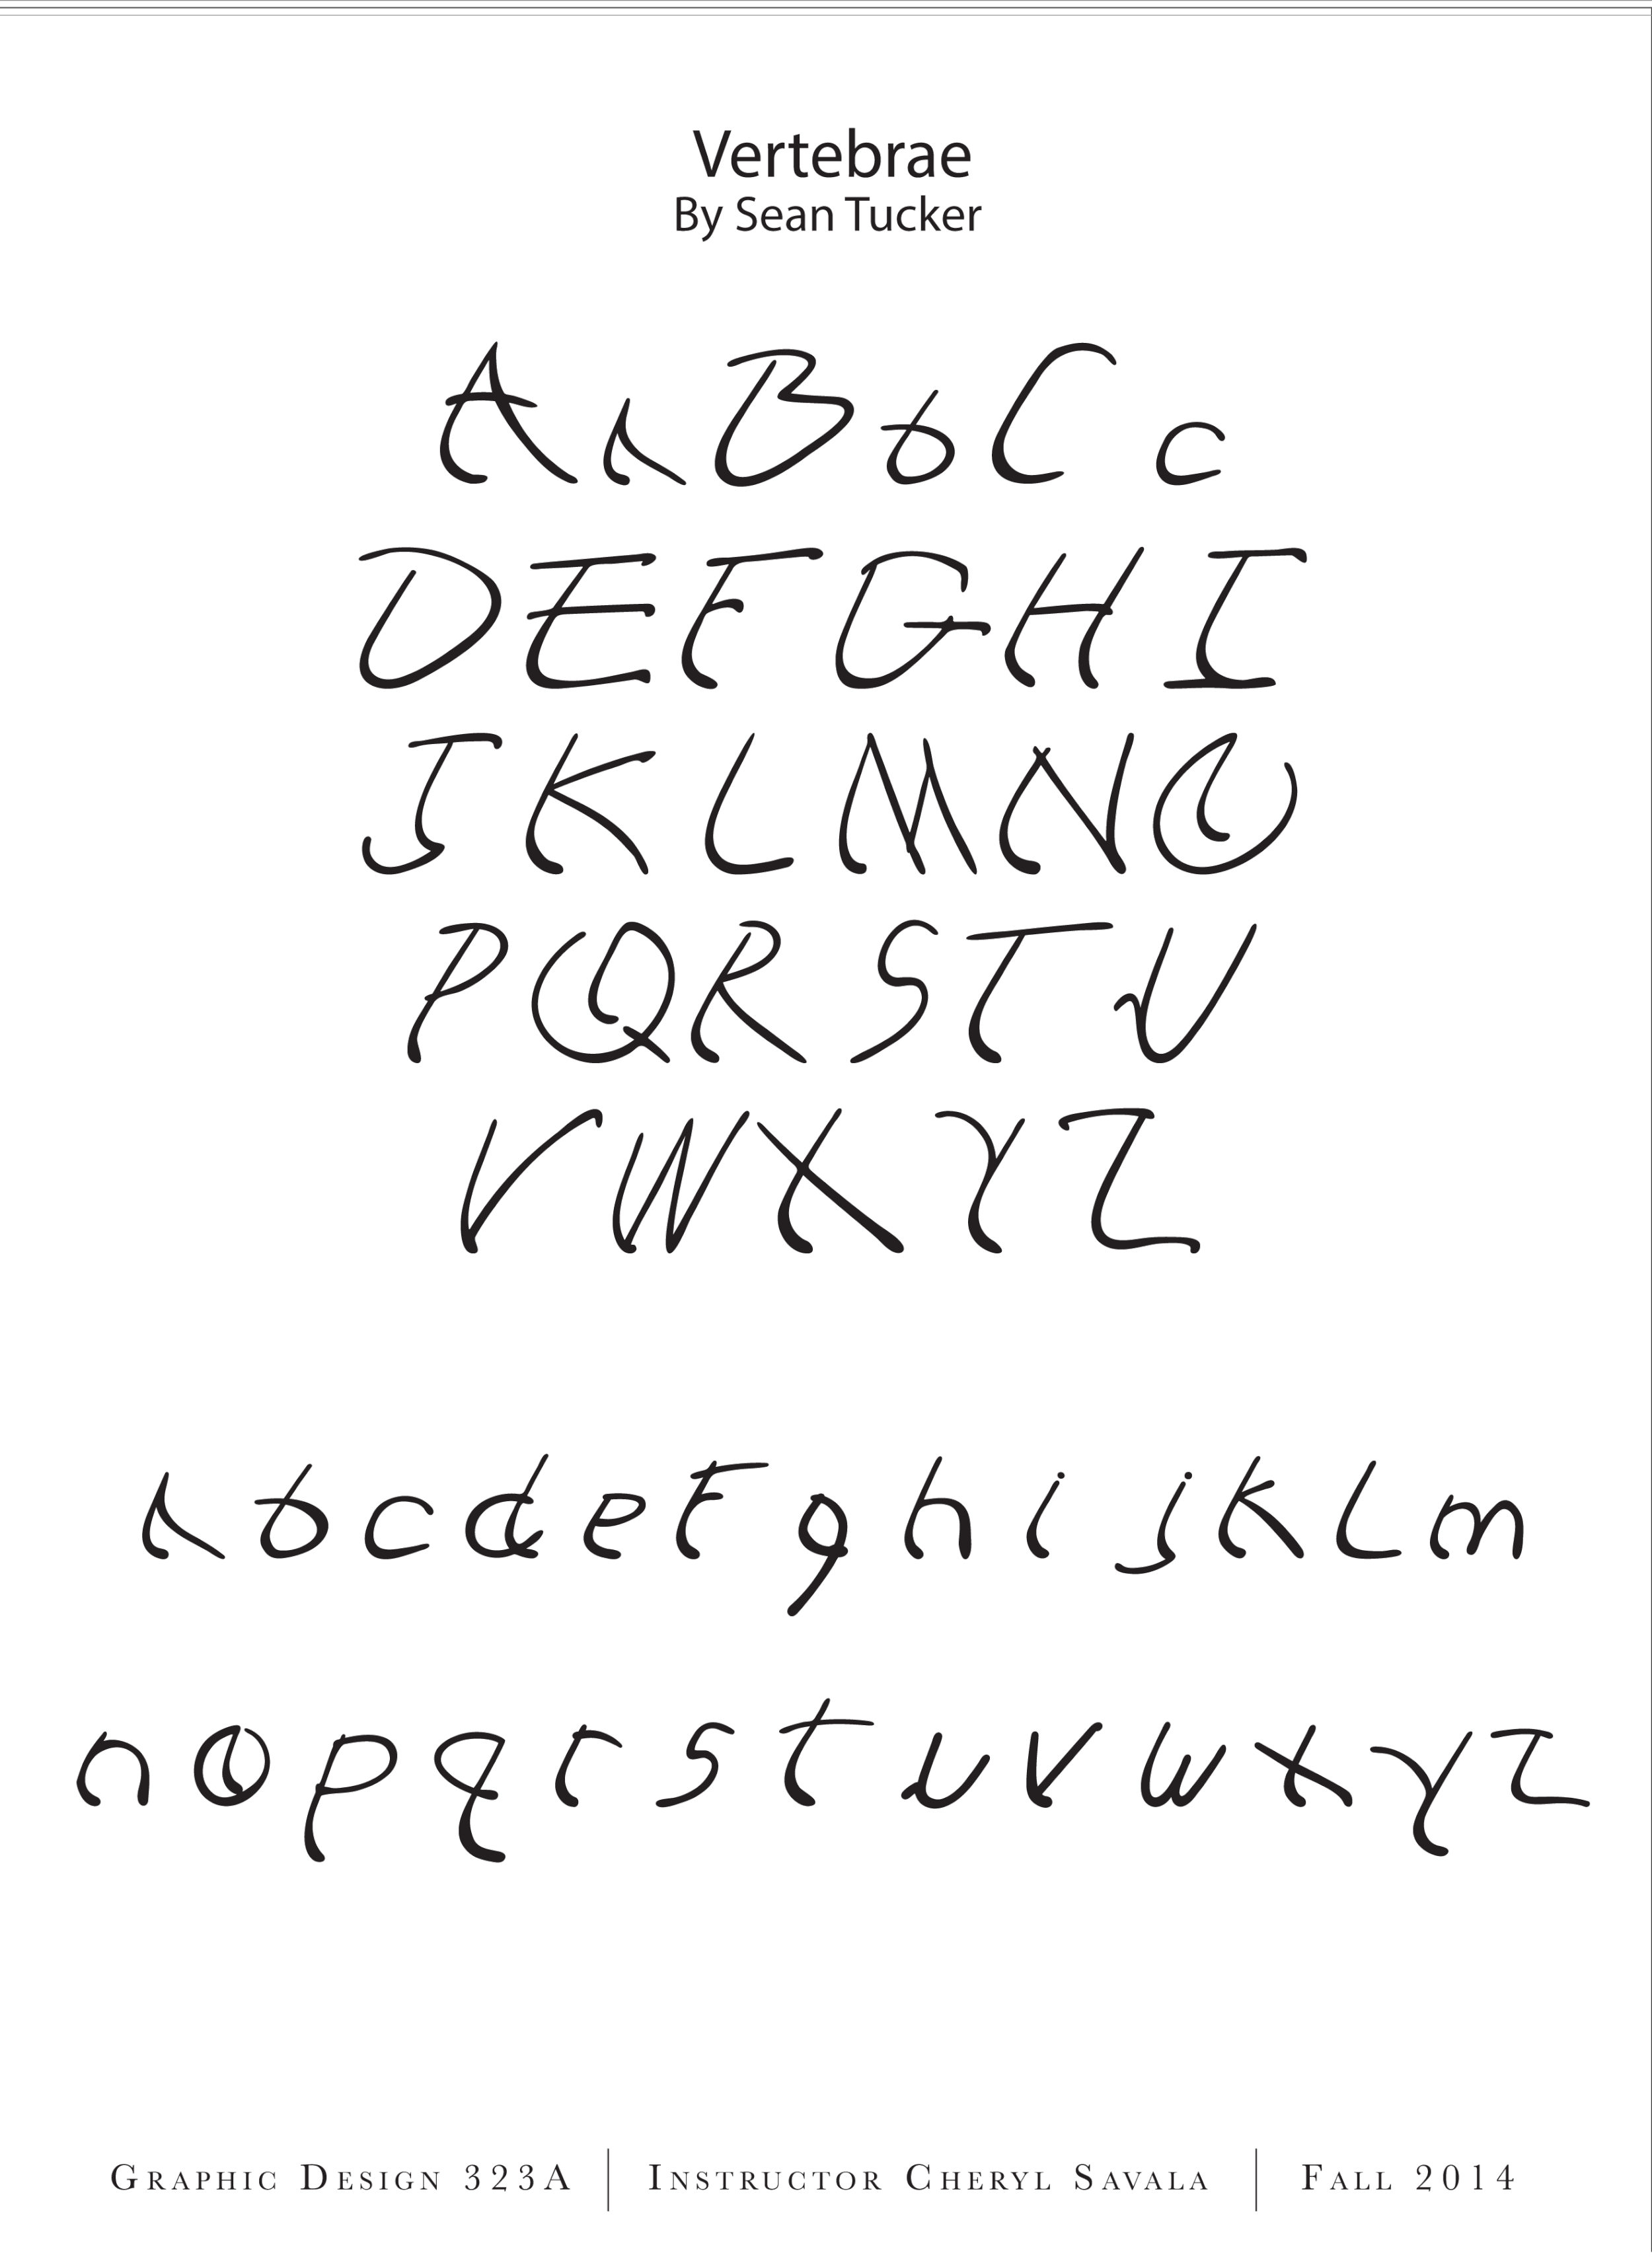 Vertebrae
By Sean Tucker
A a B b C c
D E F G H I
J K L M N O
P Q R S T U
V W X Y Z
a b c d e f g h i j k l m
n o p q r s t u v w x y z
Graphic Design 323A | Instructor Cheryl Savala | Fall 2014